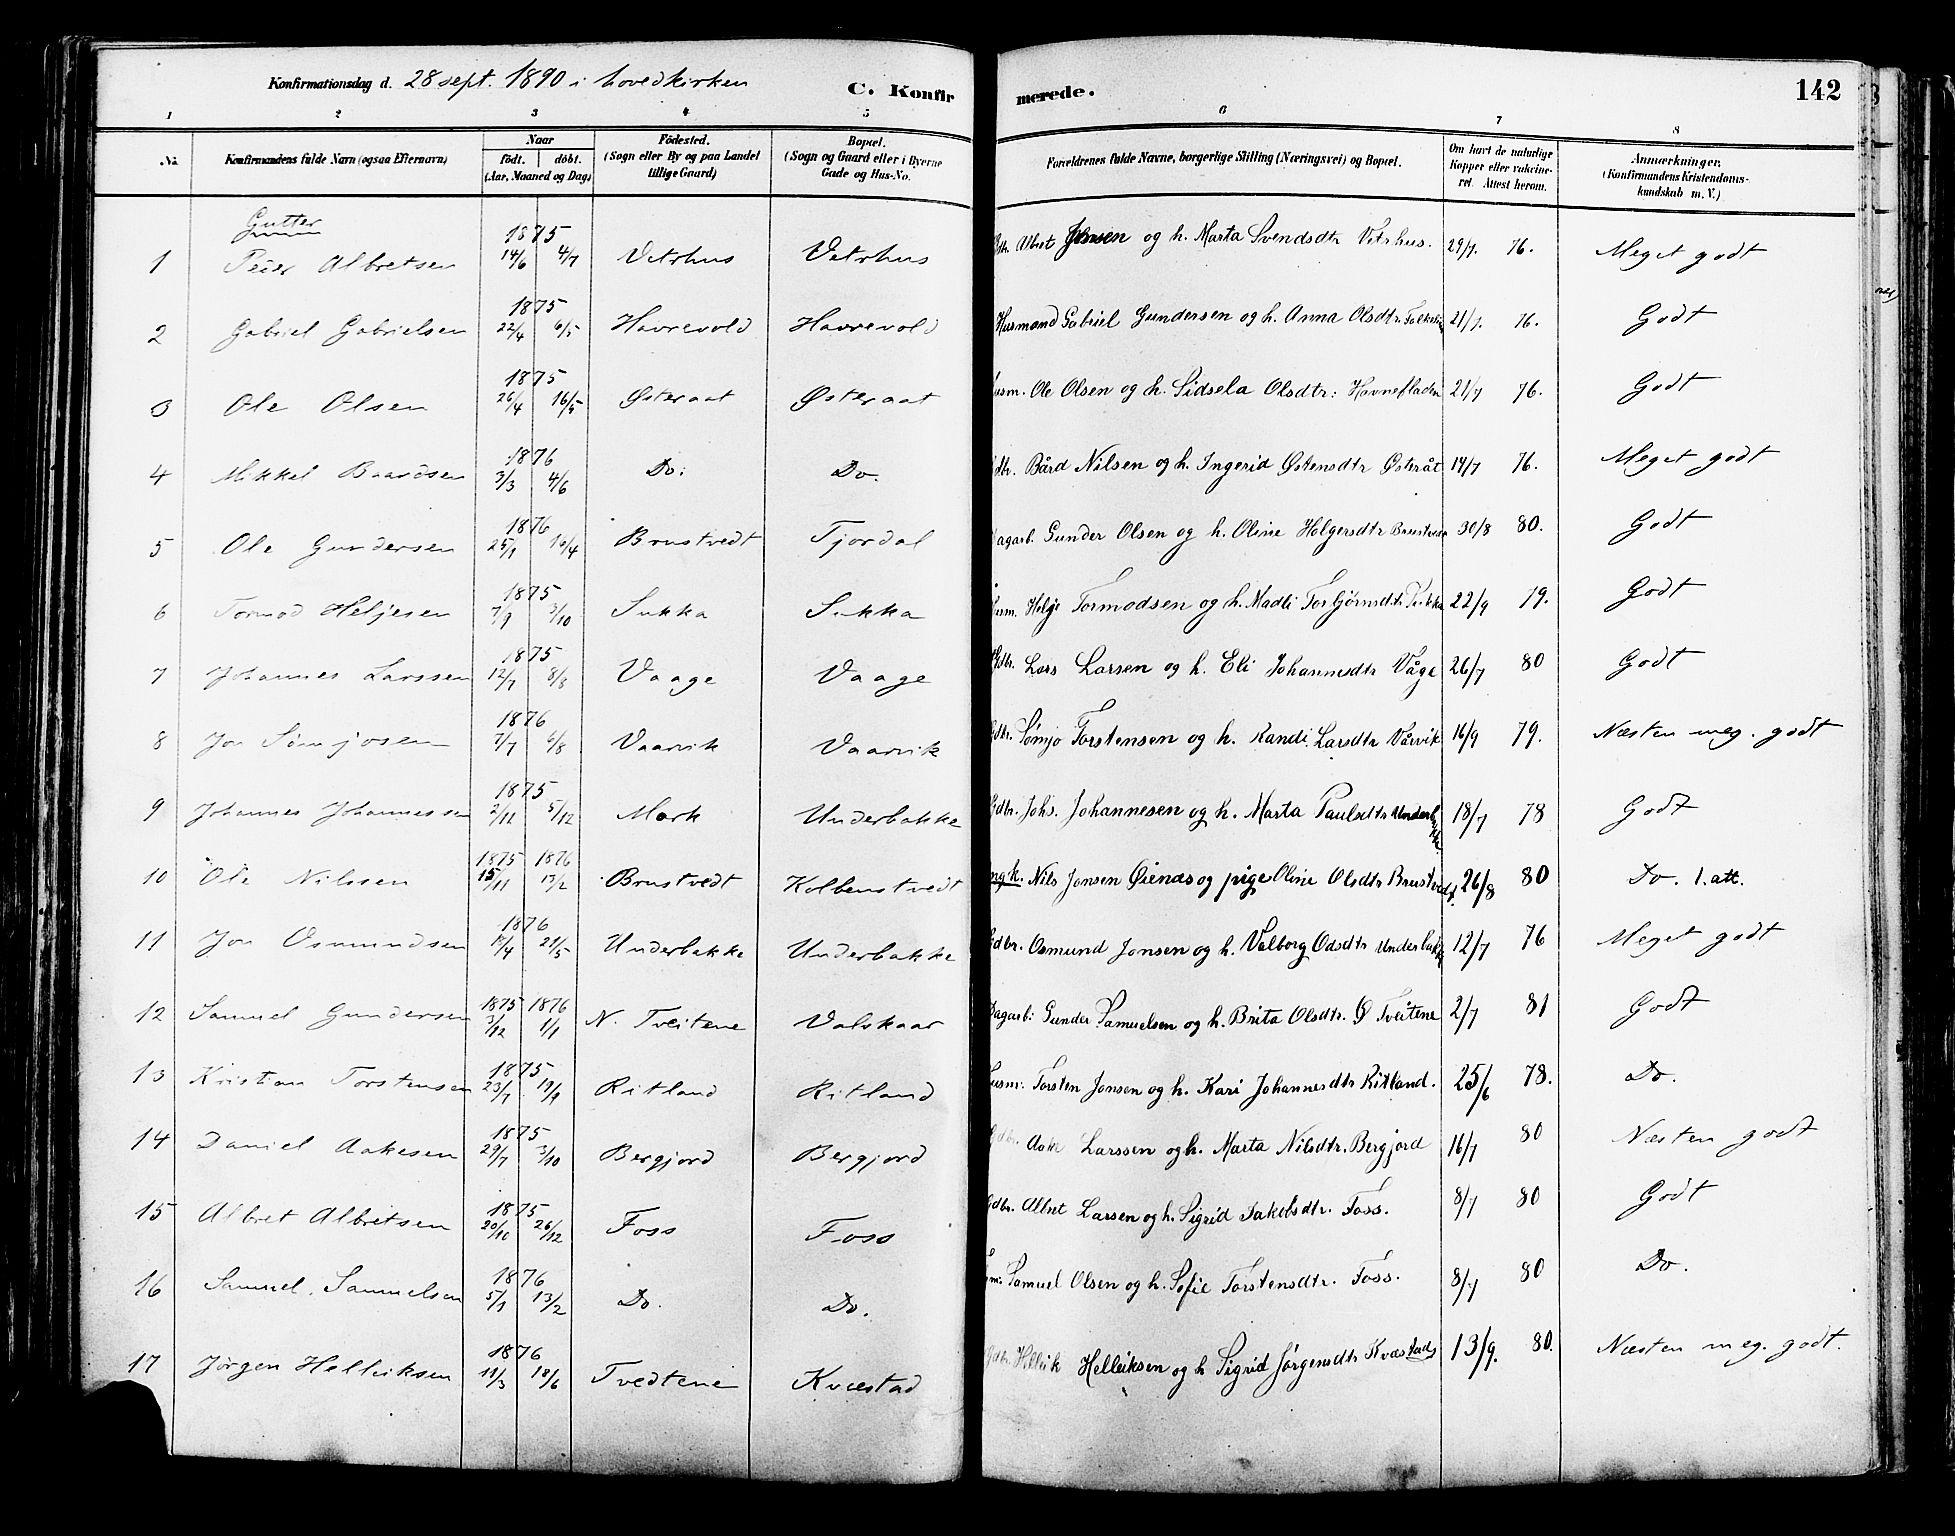 Konfirmationsdag d. 28 sept. 1890 i hovedkirken C. Konfirmerede. 142
1 2 3 4 5 6 7 8
No. Konfirmandens fulde Navn (ogsaa Efternavn) Naar født. døbt. (Aar, Maaned og Dag) Fødested. (Sogn eller By og paa Landet tillige Gaard) Bopæl. (Sogn og Gaard eller i Byerne Gade og Hus-No. Forældrenes fulde Navne, borgerlige Stilling (Næringsvei) og Bopæl. Om havt de naturlige Kopper eller vakcineret. Attest herom. Anmærkninger. (Konfirmandens Kristendomskundskab m. V.)
Gutter
1 Peder Albretsen 1875 14/6 4/7 Vetrhus Vetrhus Gdbr. Albret Jonsen og h. Marta Svendsdtr Vetrhus. 29/7. 76. Meget godt
2 Gabriel Gabrielsen 1875 22/4 6/5 Havrevold Havrevold Husmand Gabriel Gundersen og h. Anna Olsdtr 21/7. 76. Godt
3 Ole Olsen 1875 26/4 16/5 Østeraat Østeraat Husm. Ole Olsen og h. Sidsela Olsdtr: Havnefladen 21/7 76. Godt
4 Mikkel Baardsen 1876 3/3 4/6 Do: Do. Gdbr. Bård Nilsen og h. Ingerid Østensdtr Østeråt 14/7 76. Meget godt
5 Ole Gundersen 1876 25/1 16/4 Brustvedt Tjordal Dagarb. Gunder Olsen og h. Oline Holgersdtr Brustvedt 30/8 80. Godt
6 Tormod Heljesen 1875 7/9 3/10 Sukka Sukka Husm. Helje Tormodsen og h. Madli Torbjørnsdtr Sukka 22/9 79. Godt
7 Johannes Larssen 1875 12/7 8/8 Vaage Vaage Gdbr. Lars Larsen og h. Eli Johannesdtr Våge 26/7 80 Godt
8 Jon Sømjosen 1876 7/7 6/8 Vaarvik Vaarvik Gdbr. Sømjo Torstensen og h. Randi Larsdtr Vårvik 16/9 79. Næsten meg. godt
9 Johannes Johannessen 1875 2/11 5/12 Mork Underbakke Gdbr. Johs. Johannesen og h. Marta Paulsdtr Underbakke. 18/7 78 Godt
10 Ole Nilssen 1875 1876 15/11 13/2 Brustvedt Kolbenstvedt Ungk. Nils Jonsen Øienæs og pige Oline Olsdtr Brustvedt. 26/8 80 Do. 1. att.
11 Jon Osmundsen 1876 18/4 21/5 Underbakke Underbakke Gdbr. Osmund Jonsen og h. Valborg Odsdtr Underbakke 12/7 76 Meget godt
12 Samuel Gundersen 1875 1876 3/12 1/1 N. Tveitene Valskaar Dagarb: Gunder Samuelsen og h. Brita Olsdtr. Ø Tveitene 2/7 81 Godt
13 Kristian Torstensen 1875 23/7 19/9 Ritland Ritland Husm: Torsten Jonsen og h. Kari Johannesdtr Ritland. 25/6 78. Do.
14 Daniel Aakesen 1875 29/7 3/10 Bergjord Bergjord Gdbr. Aake Larssen og h. Marta Nilsdtr. Bergjord 16/7 80 Næsten godt
15 Albret Albretsen 1875 20/10 26/12 Foss Foss Gdbr. Albret Larsen og h. Sigrid Jakobsdtr. Foss. 8/7 80 Godt
16 Samuel. Samuelsen 1876 5/1 13/2 Do. Do. Samuel Olsen og h. Sofie Torstensdtr. Foss. 8/7 80 Do.
17 Jørgen Helleiksen 1876 11/3 18/6 Tvedtene Kvæstad Gdbr. Helleik Helleiksen og h Sigrid Jørgensdtr Kvæstad 13/9. 80. Næsten meg. godt.